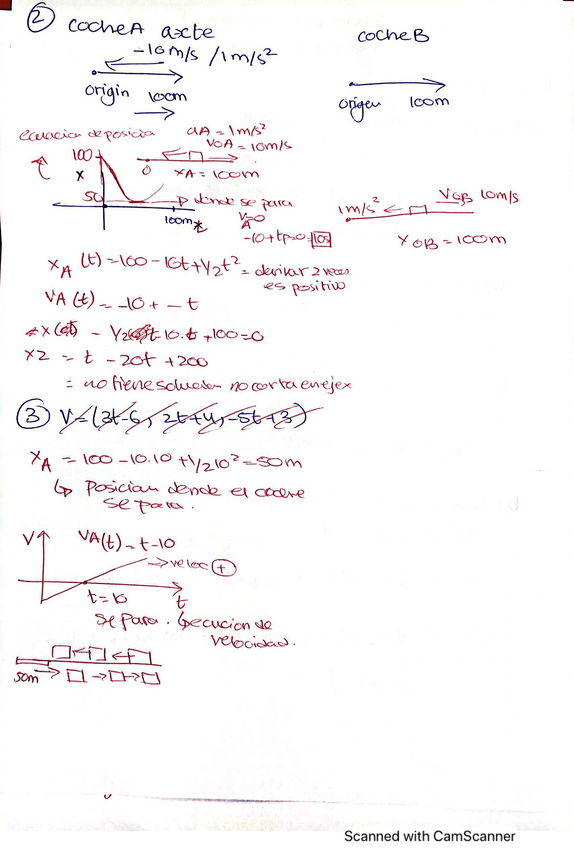 ② coche A a=cte
-10m/s /1m/s²
origin 100m
coche B
origen 100m
ecuacion de posicia
aA = 1m/s²
VoA = 10m/s
100
X
0
XA = 100m
50
donde se para
100m
t
V=0
A
-10+t=0=10s
1m/s²
VoB 10m/s
XoB = 100m
XA (t) = 100 - 10t + 1/2 t² = derivar 2 veces
es positivo
VA (t) = -10 + - t
- 10.t + 100 = 0
X2 = t - 20t + 200
= no tiene solucion no corta en eje x
③ V = (3t-6, 2t+4, -5t+3)
XA = 100 - 10.10 + 1/2 10² = 50m
↳ Posician donde el coche
se para.
V
VA(t) = t-10
→ veloc ⊕
t=10
t
se para. ↳ecucion de
velocidad.
50m
Scanned with CamScanner